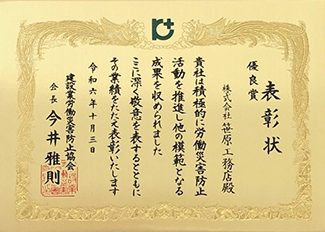 表彰状
優良賞
株式会社 笹原工務店殿
貴社は積極的に労働災害防止
活動を推進し他の模範となる
成果を収められました
ここに深く敬意を表するとともに
その業績をたたえ表彰いたします
令和六年十月三日
建設業労働災害防止協会
会長 今井雅則